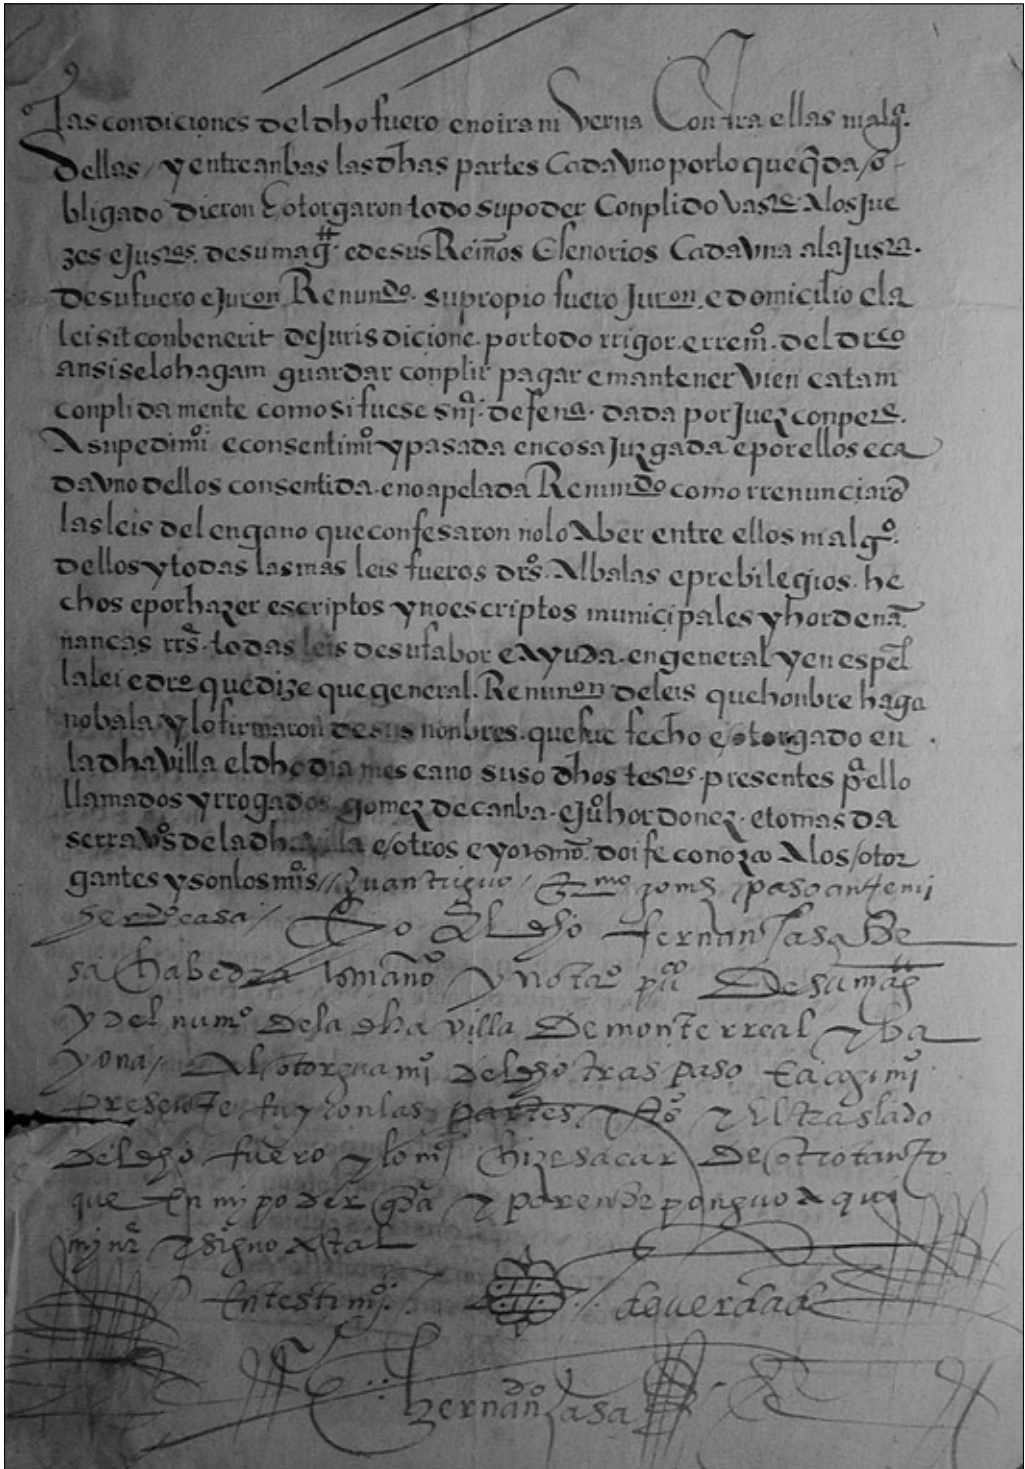 las condiciones del dho fuero e no iran ni verna Contra ellas ni alga.
dellas / y entre anbas las dhas partes Cada vno por lo que qda / o
bligado dieron E otorgaron todo su poder Conplido vaste A los Jue
zes e Justas. de su magt. e de sus Reinos E senorios Cada vna a la Justa.
de su fuero e Juron Renundo. su propio fuero Juron. e domicilio e la
lei sit conbenerit de Juris dicione. por todo rrigor. e rremo. del dreo
ansi se lo hagam guardar conplir pagar e mantener vien e atam
conplida mente como si fuese sni. defena. dada por Juez conpete.
A su pedimi. e consentimo y pasada en cosa Juzgada e por ellos e ca
da vno dellos consentida. e no apelada Renundo como rrenunciaro
las leis del engano que confesaron no lo Aber entre ellos ni algo.
dellos y todas las mas leis fueros dros. Albalas e prebilegios. he
chos e por hazer escriptos y no escriptos municipales y hordena
nancas rrs. todas leis de su fabor e Ayuda. en general y en espel
la lei e dro que dize que general. Renunon de leis que honbre haga
no bala. y lo firmaron de sus nonbres. que fue fecho e / otorgado en
la dha villa el dho dia mes e ano suso dhos testos. presentes pa ello
llamados y rrogados gomez de canba. e Juo hordonez. e tomas da
serra vos de la dha villa e / otros e yo ssno. doi fe conozco A los / otor
gantes y son los mis // Juan triguo / gmo gomz paso ante mi
herdo casa / Yo El dho fernan casa De
sa abedra ssmano y notao puco De su magt
y del numo De la dha villa De monterreal y ba
yona / Al otorguami del dho traspaso En agimi
presente fuy con las partes y tos y El traslado
del dho fuero y lo mi hize sacar De otro tanto
que En mi poder qda y por ende ponguo aqui
mi nre y signo atal
En testimo. de uerdad
hernando casa